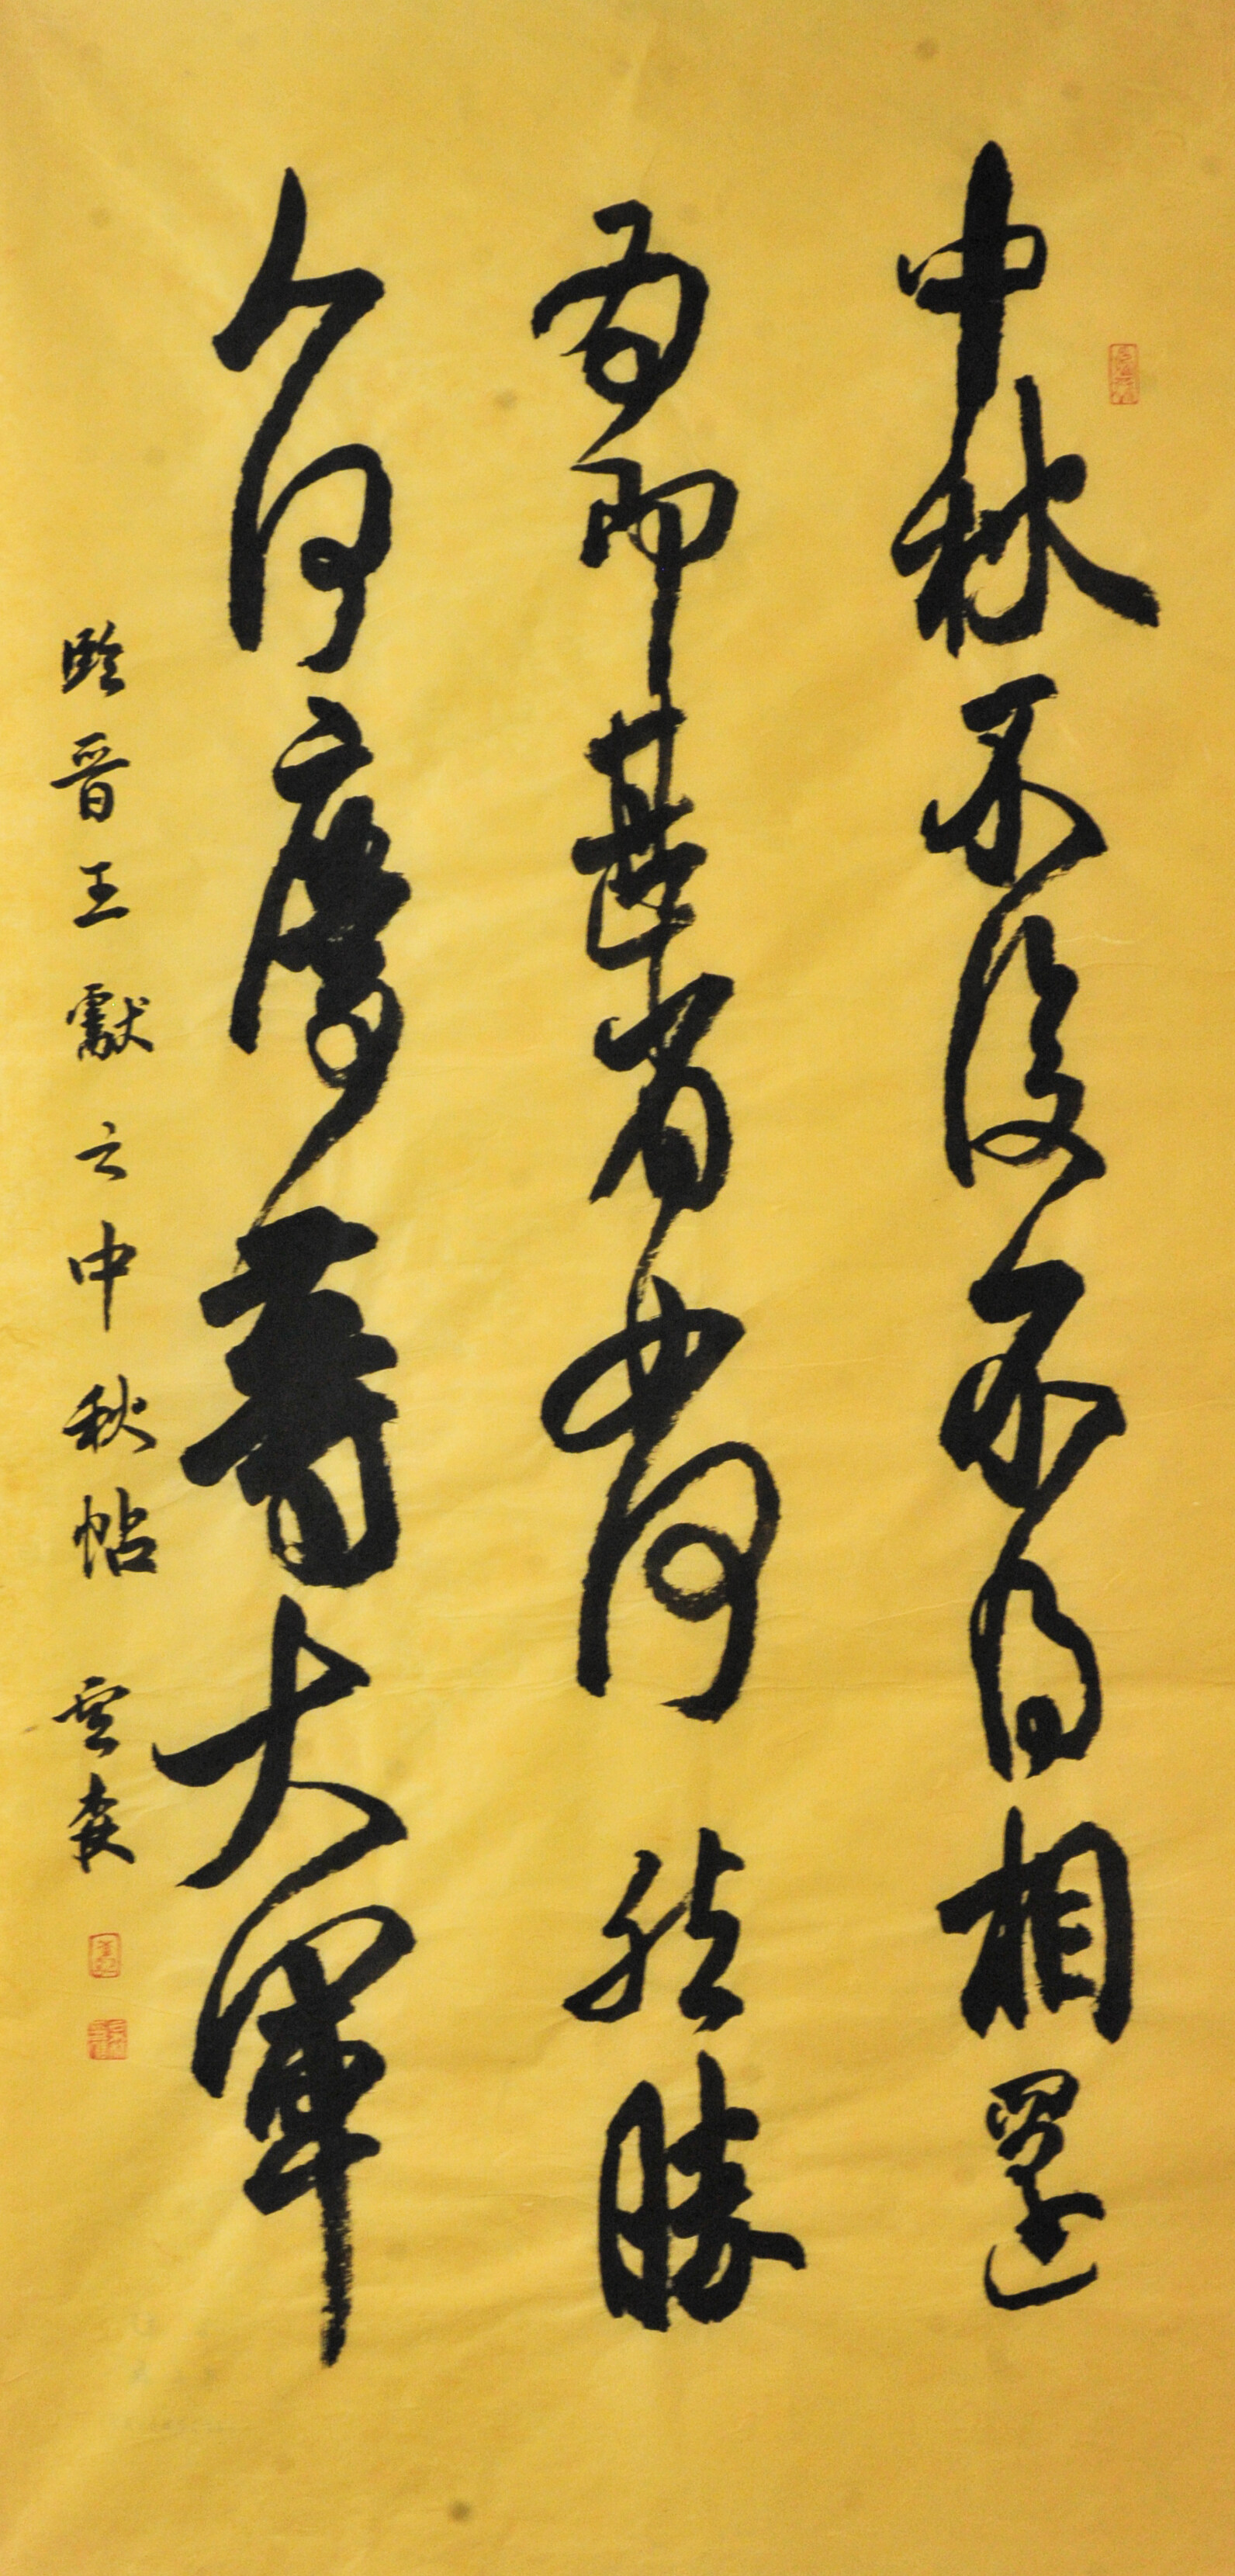 中秋不復不得相還
為即甚省如何然勝
人何慶等大軍
臨晉王獻之中秋帖 雲森